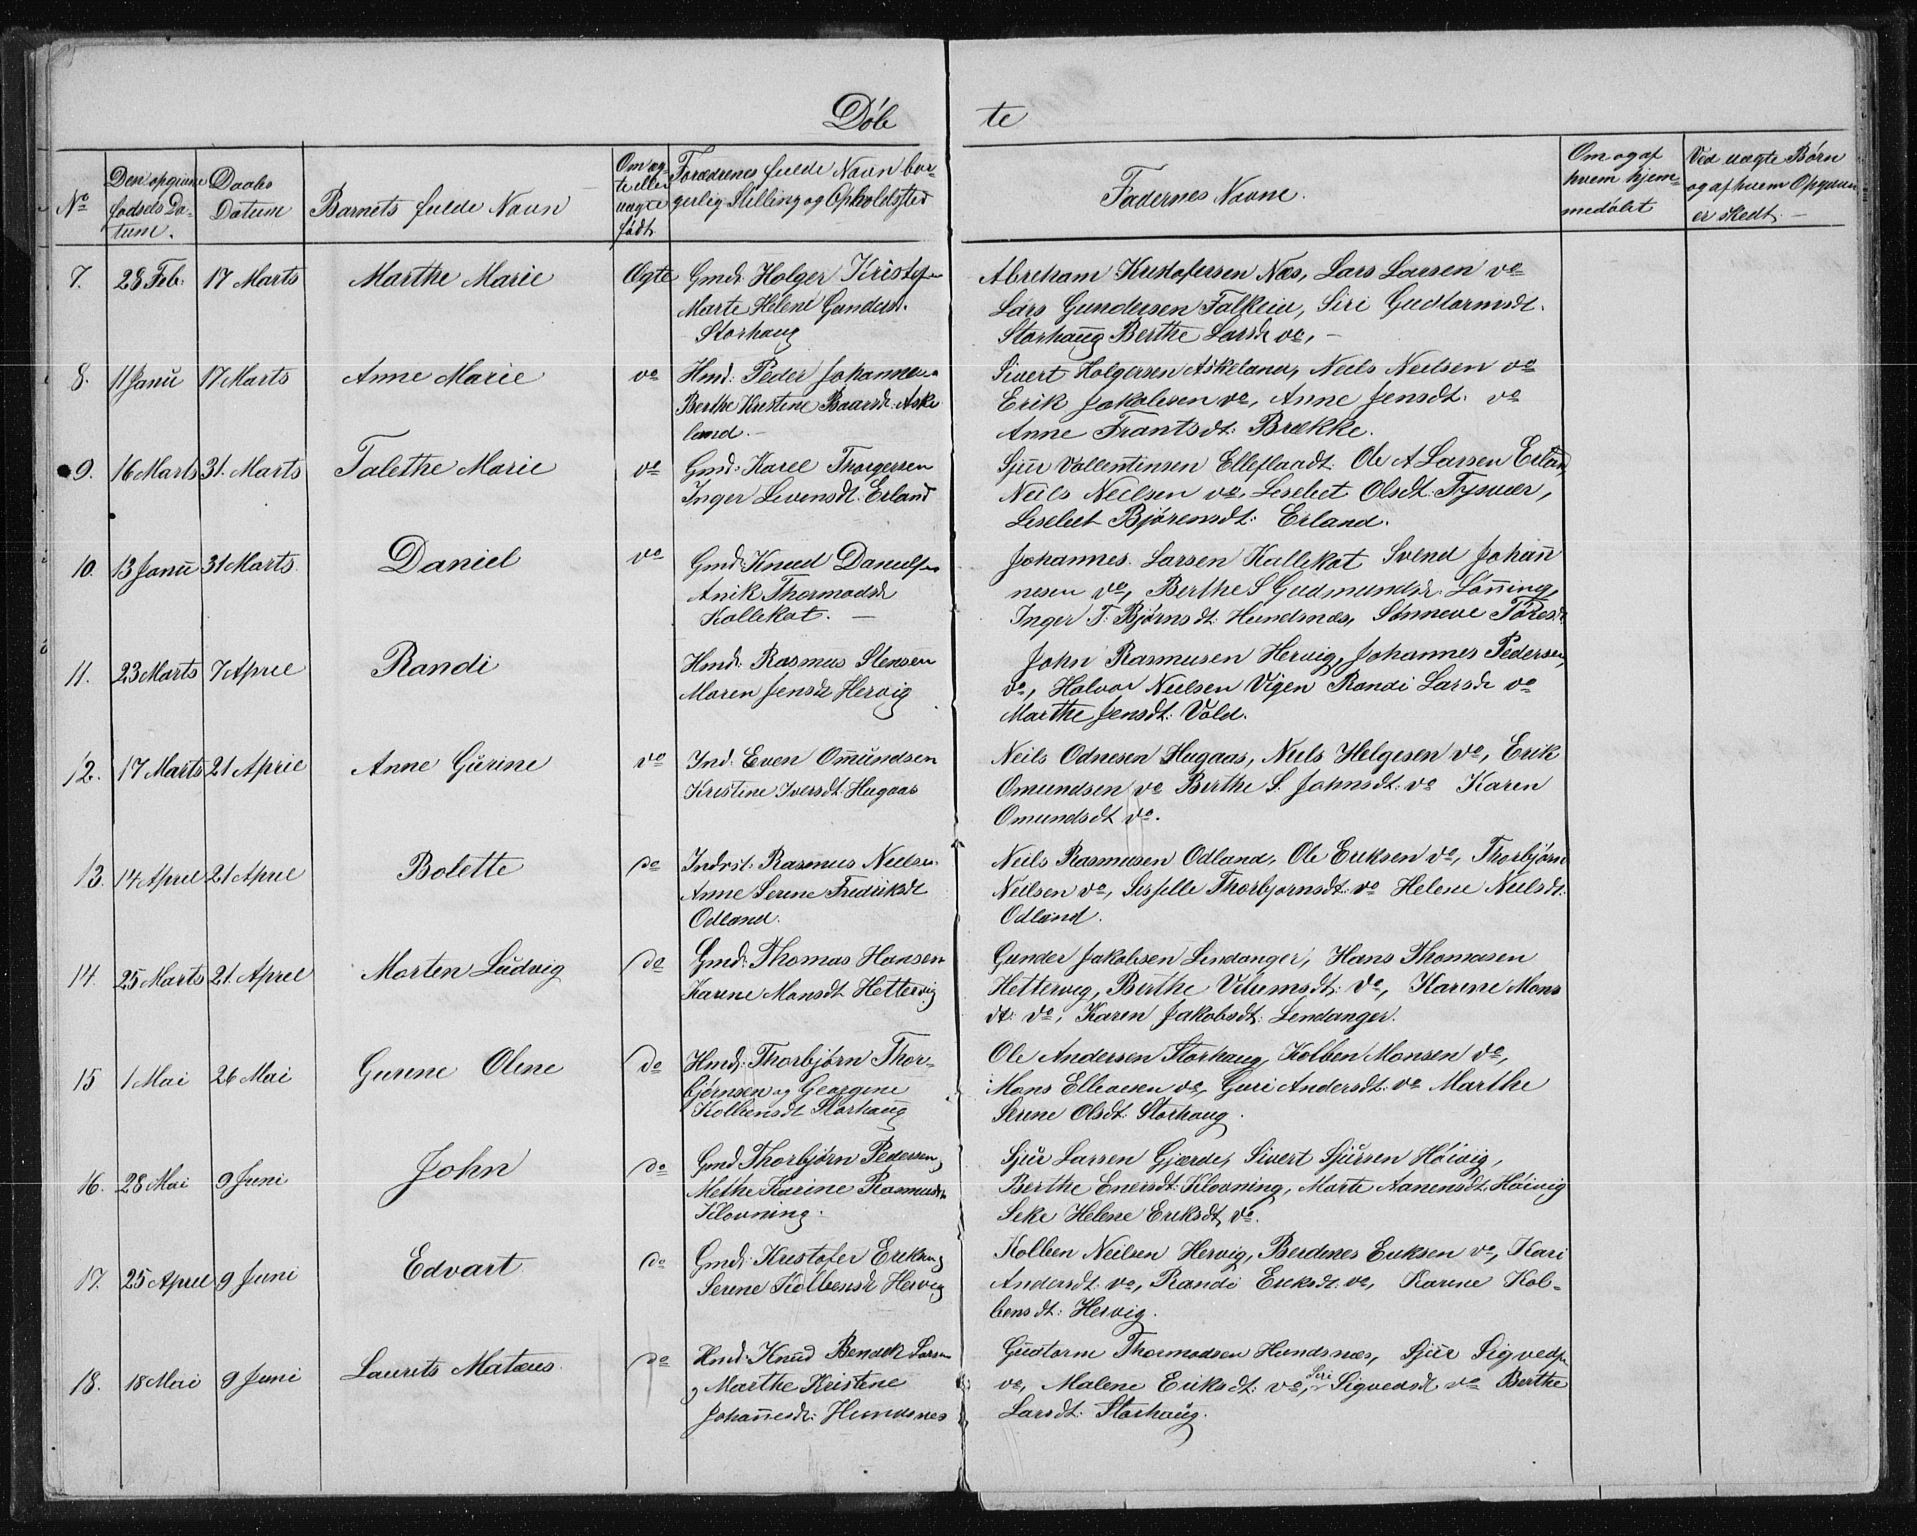 Døb te
No
Den opgivne fødsels Datum.
Daabs Datum
Barnets fulde Navn
Om ægte eller uægte født
Forædrenes fulde Navn borgerlig Stilling og Opholdsted
Faddernes Navne.
Om og af hvem hjemmedøbt
Ved uægte Børn og af hvem Opgaven er skedt. —
7. 28 Feb. 17 Marts Marthe Marie Ægte Gmd: Holger Kristofs
Marte Helene Gundersd.
Storhaug
Abreham Kristofersen Næs, Lars Larsen vo
Lars Gundersen Falkeiu, Siri Gudtormsdt.
Storhaug Berthe Larsdr vo, —
8. 11 Janu 17 Marts Anne Marie vo Hmd: Peder Johannesen
Berthe Kristine Baarsdr Aske
land. —
Sivert Holgersen Askeland, Neils Neilsen vo
Erik Jakobsen vo, Anne Jensdt. vo
Anne Frantsdt: Brække.
9. 16 Marts 31. Marts Talethe Marie vo Gmd: Karel Thorgersen
Inger Levensdt. Erland
Sjur Vallentinsen Elleflaadt. Ole A Larsen Erland,
Neils Neilsen vo, Lesebet Olsdt. Tysvær,
Lesebet Bjørensdt: Erland.
10. 13 Janu 31 Marts Daniel vo Gmd: Knud Danielsen
Anik Thormodsdr
Kallekot. —
Johannes Larsen Kallekot Svend Johan
nesen vo, Berthe S Gudmundsdr. Lønning,
Inger T. Bjørnsdt. Hundsnæs, Sønneve Toresdr
11. 23 Marts 7 Aprel Randi Hmd: Rasmus Stensen
Maren Jensdr Hervig
John Rasmusen Hervig, Johannes Pedersen,
vo, Halvor Neilsen Vigen Randi Larsdr vo
Marthe Jensdt: Vold.
12. 17 Marts 21 Aprie Anne Gurine vo Ind: Even Omundsen
Kristine Iversdt: Hugaas
Neils Odnesen Hugaas, Niels Helgesen vo, Erik
Omundsen vo Berthe S. Johnsdt. vo Karen
Omundsdt vo.
13. 14 Aprel 21 Aprel Bolette do Indrst. Rasmus Neilsen
Anne Serene Fredriksdt
Odland.
Neils Rasmusen Odland, Ole Eriksen vo, Thorbjørn
Neilsen vo, Sesselle Thorbjornsdt: vo Helene Neilsdt:
Odland.
14. 25 Marts 21 Aprel Morten Ludvig do Gmd: Thomas Hansen
Karene Monsdt Hettervig
Gunder Jakobsen Lindanger, Hans Thomasen
Hetterveg, Berthe Vilumsdt: vo, Karene Mons
dt: vo, Karen Jakobsdt: Lendanger.
15 1 Mai 26 Mai Gurene Olene do Hmd: Thorbjørn Thor-
bjørnsen og Georgine
Kolbensdt Storhaug
Ole Andersen Storhaug, Kolben Monsen vo,
Mons Elleveesen vo, Guri Andersdt: vo Marthe
Serene Olsdt: Storhaug.
16. 28 Mai 9 Juni John do Gmd Thorbjørn Pedersen,
Methe Karine Rasmusdr
Klovning.
Sjur Larsen Gjærde, Sivert Sjursen Høivig,
Berthe Enersdt: Klovning, Marte Aanensdt. Høivig
Seke Helene Eriksdt, vo.
17. 25 Aprel 9 Juni Edvart do Gmd: Kristofer Eriksen
Serene Kolbensdr Hervig
Kolben Neilsen Hervig, Berdenes Eriksen vo, Kari
Andersdt: vo, Randi Eriksdt: vo, Karene Kol-
bensdt: Hervig.
18. 18 Mai 9 Juni Laurits Matæus do Hmd: Knud Bendek Larsen
og Marthe Kristine
Johannesdr: Hundsnes
Gudtorm Thormodsen Hundsnæs, Sjur Sigvedsen
vo, Malene Eriksdt: vo, Siri Sigvedsdt vo Berthe
Larsdt: Storhaug.